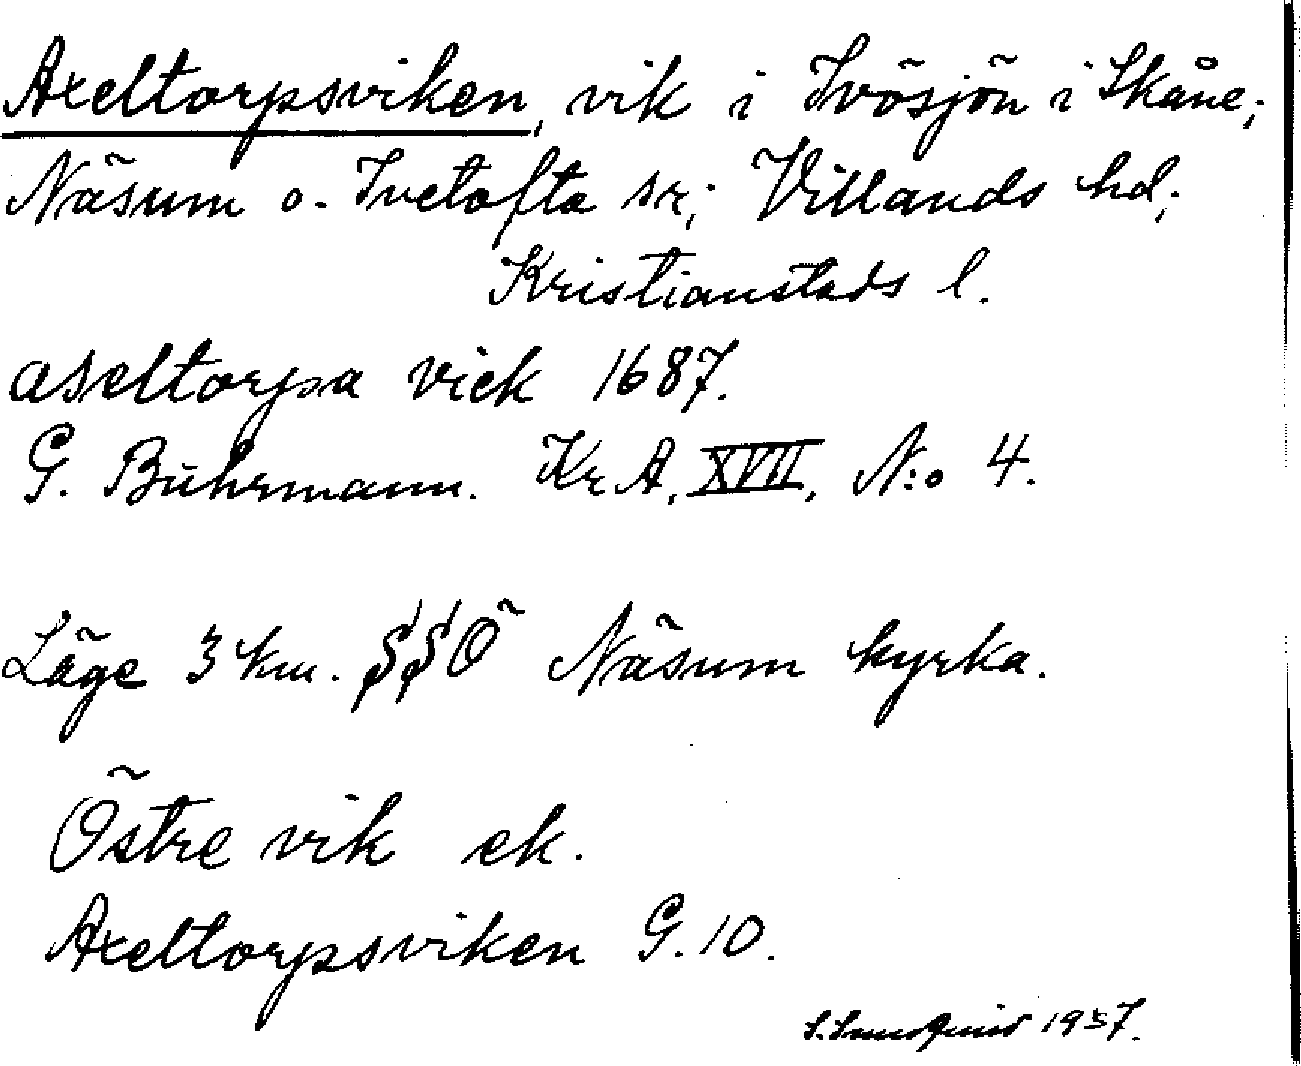 Axeltorpsviken, vik i Ivösjön i Skåne;
Näsum o. Ivetofta sr; Villands hd;
Kristianstads l.
aseltorpa vick 1687.
G. Buhrmann. Kr A, XVII, N:o 4.
Läge 3 km. SSÖ Näsum kyrka.
Östre vik ek.
Axeltorpsviken G. 10.
1937.